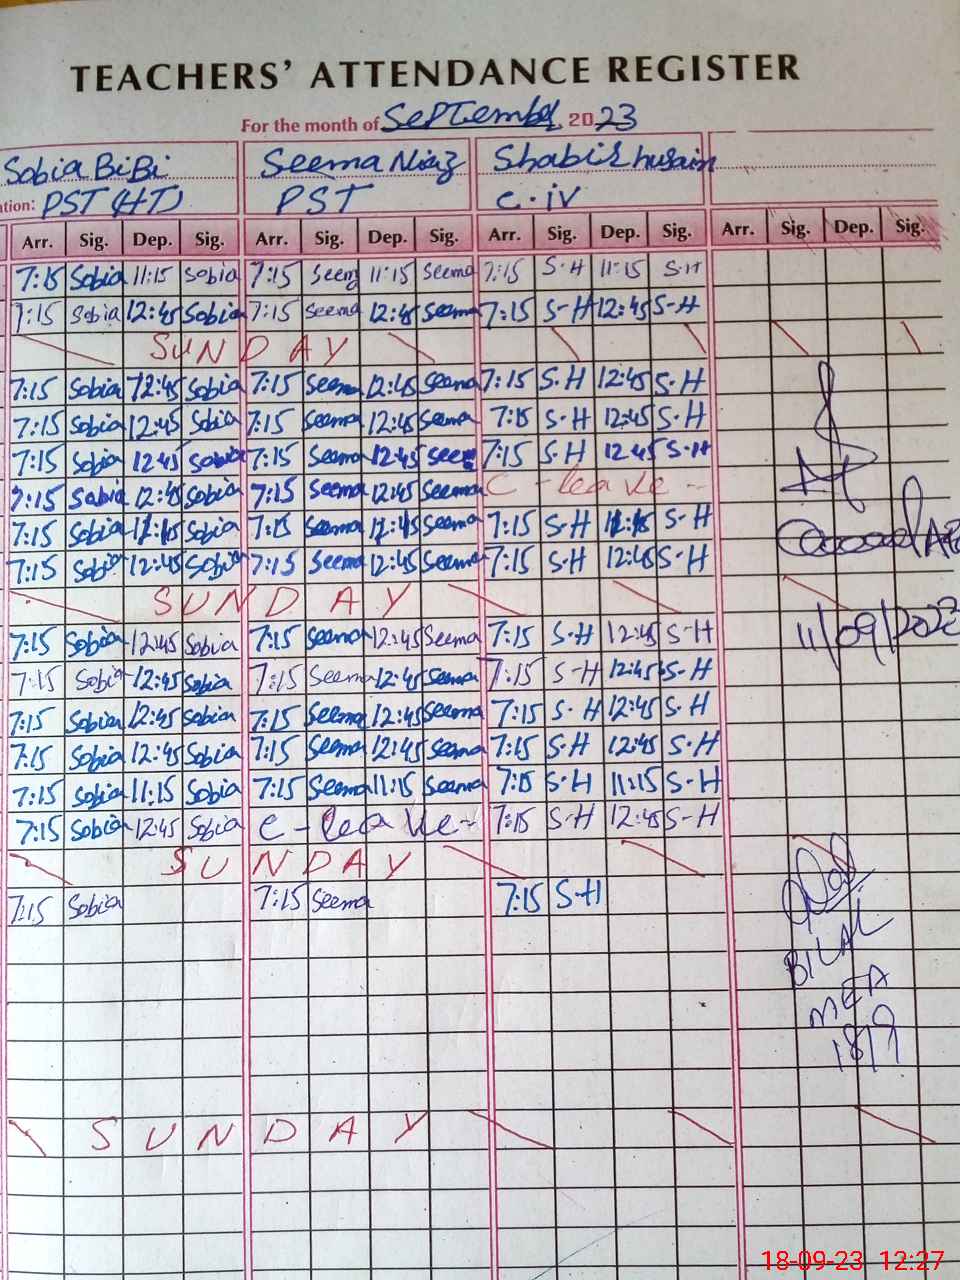 TEACHERS' ATTENDANCE REGISTER
For the month of September 2023
Sobia BiBi Seema Niaz Shabir husain
ation: PST (HT) PST C-iv
Arr. Sig. Dep. Sig. Arr. Sig. Dep. Sig. Arr. Sig. Dep. Sig. Arr. Sig. Dep. Sig.
7:15 Sobia 11:15 Sobia 7:15 Seema 11:15 Seema 7:15 S-H 11:15 S-H
7:15 Sobia 12:45 Sobia 7:15 Seema 12:45 Seema 7:15 S-H 12:45 S-H
SUNDAY
7:15 Sobia 12:45 Sobia 7:15 Seema 12:45 Seema 7:15 S.H 12:45 S.H
7:15 Sobia 12:45 Sobia 7:15 Seema 12:45 Seema 7:15 S.H 12:45 S.H
7:15 Sobia 12:45 Sobia 7:15 Seema 12:45 Seema 7:15 S.H 12:45 S.H
7:15 Sobia 12:45 Sobia 7:15 Seema 12:45 Seema C-leave-
7:15 Sobia 12:45 Sobia 7:15 Seema 12:45 Seema 7:15 S.H 12:45 S-H
7:15 Sobia 12:45 Sobia 7:15 Seema 12:45 Seema 7:15 S.H 12:45 S.H
SUNDAY
7:15 Sobia 12:45 Sobia 7:15 Seema 12:45 Seema 7:15 S.H 12:45 S-H
11/09/2023
7:15 Sobia 12:45 Sobia 7:15 Seema 12:45 Seema 7:15 S-H 12:45 S-H
7:15 Sobia 12:45 Sobia 7:15 Seema 12:45 Seema 7:15 S.H 12:45 S.H
7:15 Sobia 12:45 Sobia 7:15 Seema 12:45 Seema 7:15 S.H 12:45 S.H
7:15 Sobia 11:15 Sobia 7:15 Seema 11:15 Seema 7:15 S.H 11:15 S-H
7:15 Sobia 12:45 Sobia C-leave- 7:15 S-H 12:45 S-H
SUNDAY
7:15 Sobia 7:15 Seema 7:15 S-H
BILAL
MEA
18/9
SUNDAY
18-09-23 12:27